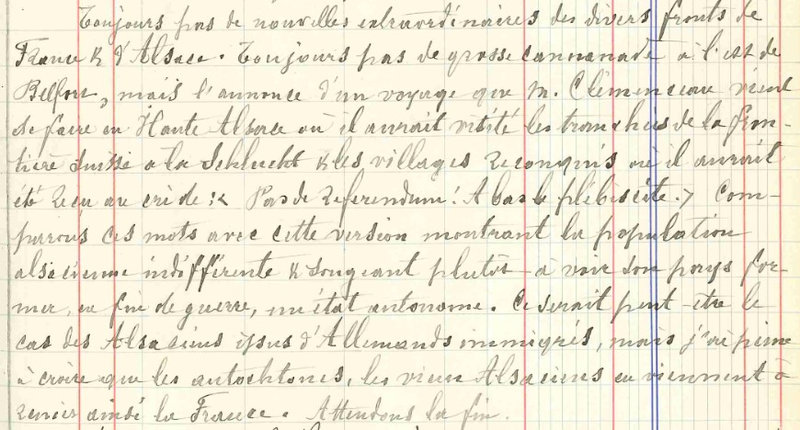 Toujours pas de nouvelles extraordinaires des divers fronts de
France & d'Alsace. Toujours pas de grosse cannonade à l'est de
Belfort, mais l'annonce d'un voyage que M. Clémenceau vient
de faire en Haute Alsace où il aurait visité les tranchées de la fron-
tière suisse à la Schlucht & les villages reconquis où il aurait
été reçu au cri de : « Pas de referendum ! A bas le plébiscite. » Com-
parons ces mots avec cette version montrant la population
alsacienne indifférente & songeant plutôt à voir son pays for-
mer, en fin de guerre, un état autonome. Ce serait peut-être le
cas des Alsaciens issus d'Allemands immigrés, mais j'ai peine
à croire que les autochtones, les vieux Alsaciens en viennent à
renier ainsi la France. Attendons la fin.